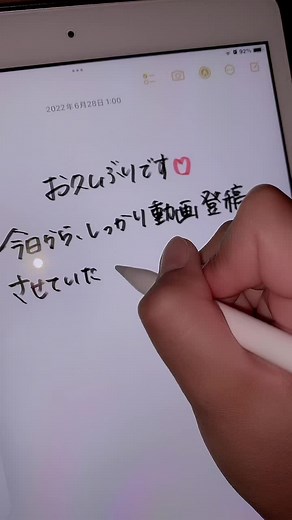 92%
2022年6月28日 1:00
お久しぶりです♡
今日から、しっかり動画登稿
させていた